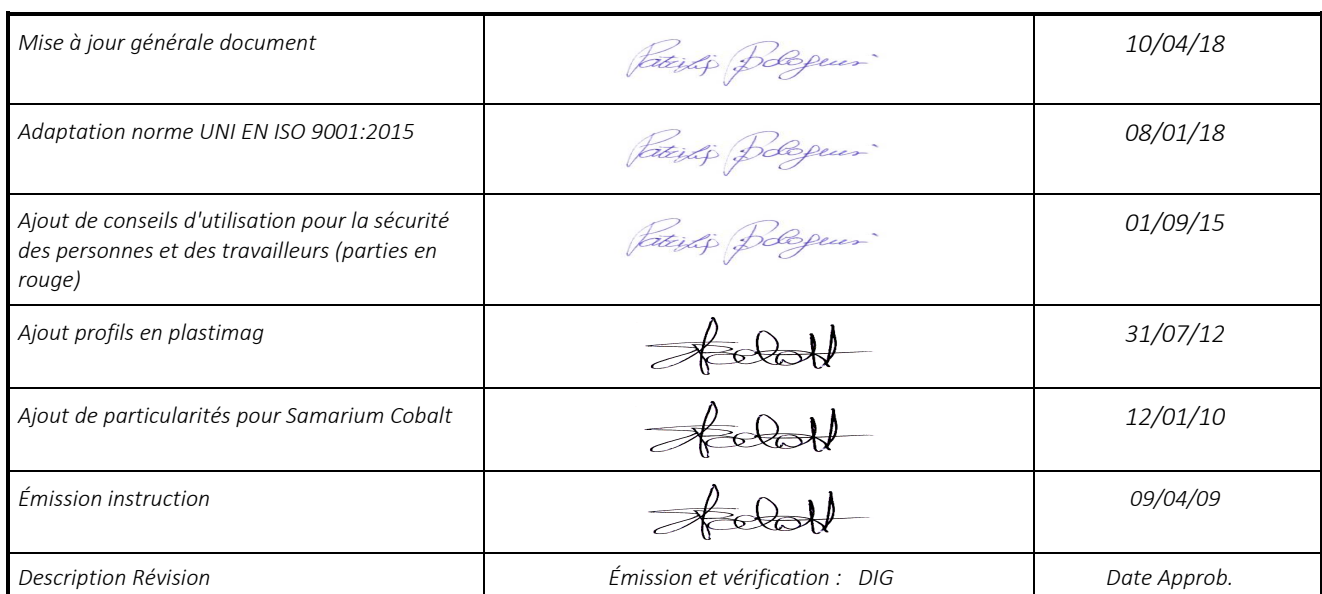 Mise à jour générale document
10/04/18
Adaptation norme UNI EN ISO 9001:2015
08/01/18
Ajout de conseils d'utilisation pour la sécurité
des personnes et des travailleurs (parties en
rouge)
01/09/15
Ajout profils en plastimag
31/07/12
Ajout de particularités pour Samarium Cobalt
12/01/10
Émission instruction
09/04/09
Description Révision
Émission et vérification : DIG
Date Approb.